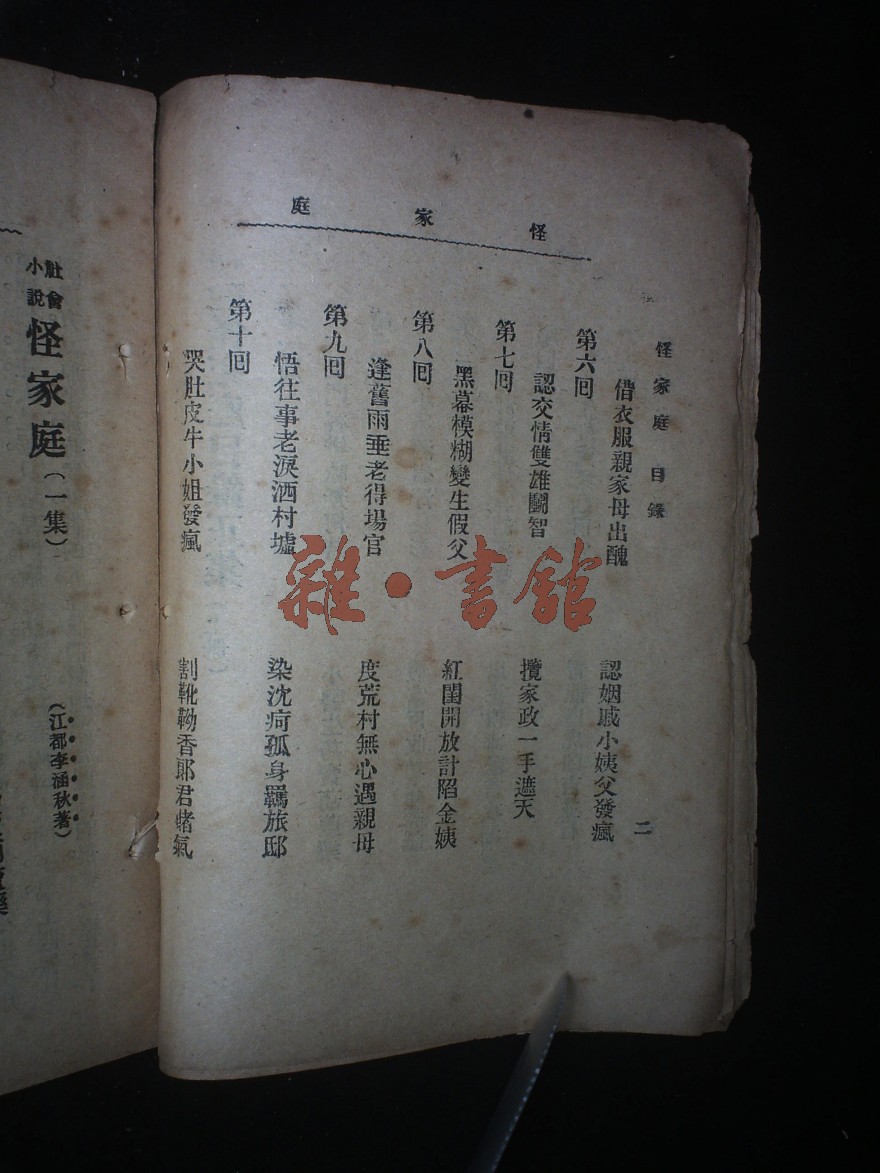 怪家庭
怪家庭 目錄
二
借衣服親家母出醜 認姻戚小姨父發瘋
第六回
認交情雙雄鬭智 攬家政一手遮天
第七回
黑幕模糊變生假父 紅閨開放計陷金姨
第八回
逢舊雨垂老得場官 度荒村無心遇親母
第九回
悟往事老淚洒村墟 染沈疴孤身羈旅邸
第十回
哭肚皮牛小姐發瘋 割靴靿香郎君賭氣
社會小說
怪家庭（一集）
（江都李涵秋著）
雜·書館